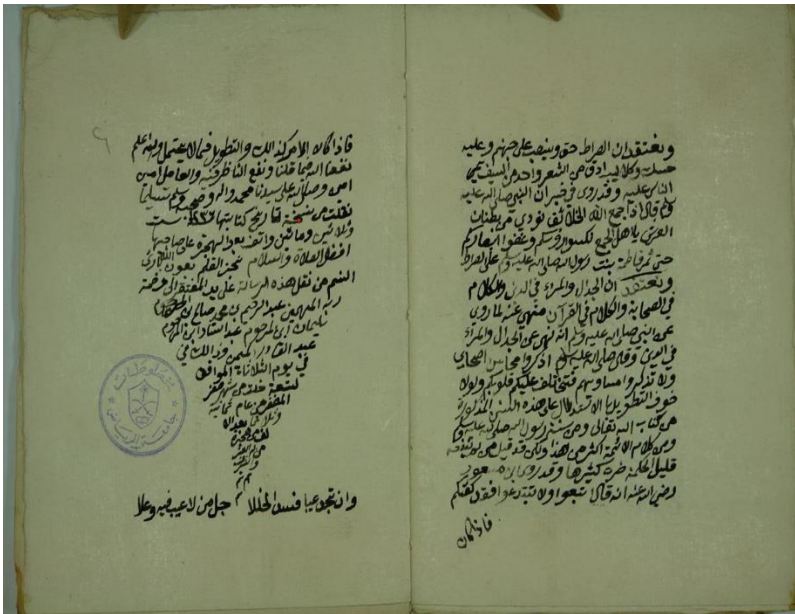 ونعتقد ان الصراط حق وينصب على جهنم وعليه
حسك وكلاليب ادق من الشعر واحد من السيف تمر
الناس عليه وقد روي في خبر ان النبي صلى الله عليه
وسلم قال اذا جمع الله الخلائق نودي من بطنان
العرش يا اهل الجمع نكسوا روسكم وغضوا ابصاركم
حتى تمر فاطمة بنت رسول الله صلى الله عليه وسلم على الصراط
ونعتقد ان الجدال والمراء في الدين والكلام
في الصحابة والكلام في القرآن منهي عنه لما روى
عن النبي صلى الله عليه وسلم انه نهى عن الجدال والمراء
في الدين وقال صلى الله عليه وسلم اذكروا محاسن اصحابي
ولا تذكروا مساويهم فتختلف عليكم قلوبكم ولولا
خوف التطويل بالاستدلال على هذه المذكورة
من كتاب الله تعالى ومن سنة رسول الله صلى الله عليه وسلم
ومن كلام الائمة اكثر من هذا ولكن قد قيل من لم
قليل الحكمة ضرت كثيرها وقد روي ابن مسعود
رضي الله عنه انه قال اتبعوا ولا تبتدعوا فقد كفيتم
فاذا كان
فاذا كان الامر كذالك والتطويل فيما لا يحتمل والله اعلم
نفعنا الله بما قلنا ونفع الناظر فيه والعامل امين
امين وصلى الله على سيدنا محمد واله وصحبه وسلم تسليما
نقلت من نسخة تاريخ كتابتها ١٢٣٦ ست
وثلاثين ومائتين والف بعد الهجرة على صاحبها
افضل الصلاة والسلام نجز القلم بعون الباري
النسم من نقل هذه الرسالة على يد المفتقر الى رحمة
ربه المهيمن عبد الرحيم بن صالح بن
سليمان ابن المرحوم عبد الستار ابن المرحوم
عبد القادر وذالك في
في يوم الثلاثاء الموافق
لتسعة خلت من شهر صفر
من عام ثمانية
بعد
وان تجد عيبا فسد الخللا جل من لا عيب فيه وعلا